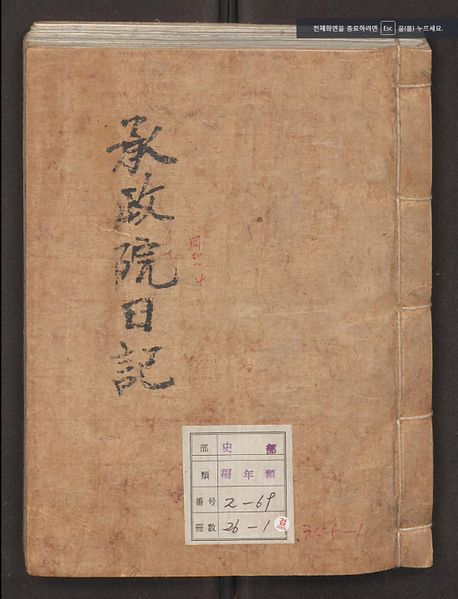 전체화면을 종료하려면 Esc 을(를) 누르세요.
承政院日記
部 史 部
類 編年類
番号 2-69
冊数 26-1